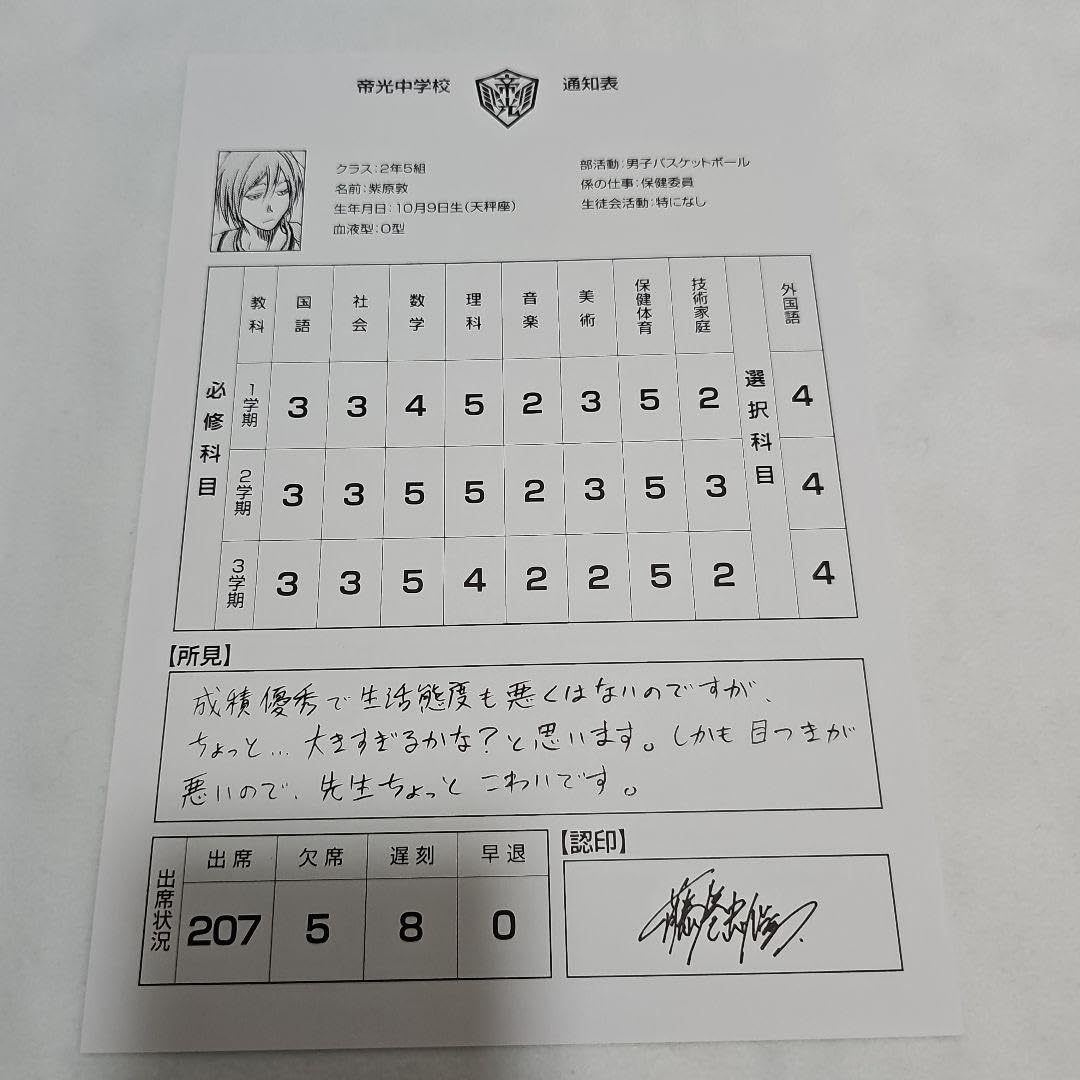 帝光中学校 帝光 通知表
クラス:2年5組
名前:紫原敦
生年月日:10月9日生(天秤座)
血液型:O型
部活動:男子バスケットボール
係の仕事:保健委員
生徒会活動:特になし
必修科目
教科 国語 社会 数学 理科 音楽 美術 保健体育 技術家庭 選択科目 外国語
1学期 3 3 4 5 2 3 5 2 4
2学期 3 3 5 5 2 3 5 3 4
3学期 3 3 5 4 2 2 5 2 4
【所見】
成積優秀で生活態度も悪くはないのですが、
ちょっと…大きすぎるかな?と思います。しかも目つきが
悪いので、先生ちょっとこわいです。
出席状況
出席 欠席 遅刻 早退
207 5 8 0
【認印】
藤巻忠俊